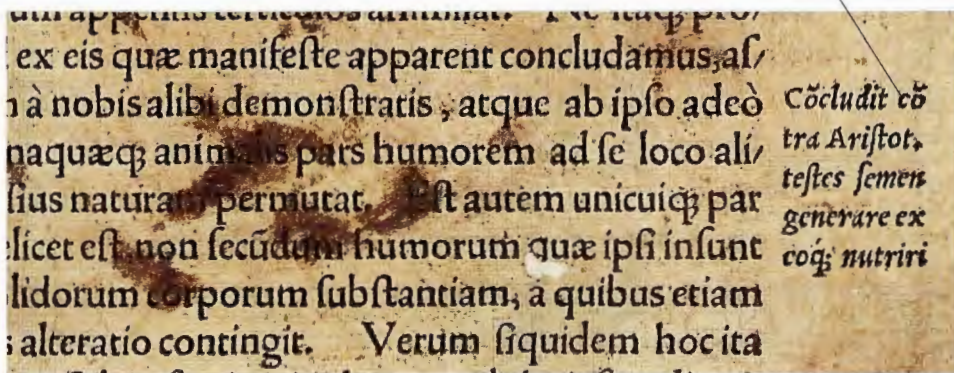 ex eis quæ manifeſte apparent concludamus, aſ/
à nobis alibi demonſtratis, atque ab ipſo adeò
naquæq; animalis pars humorem ad ſe loco ali/
ſius naturam permutat. Eſt autem unicuiq; par
licet eſt non ſecūdum humorum quæ ipſi inſunt
lidorum corporum ſubſtantiam, a quibus etiam
alteratio contingit. Verum ſiquidem hoc ita
Cõcludit cõ
tra Ariſtot.
teſtes ſemen
generare ex
coq́; nutriri